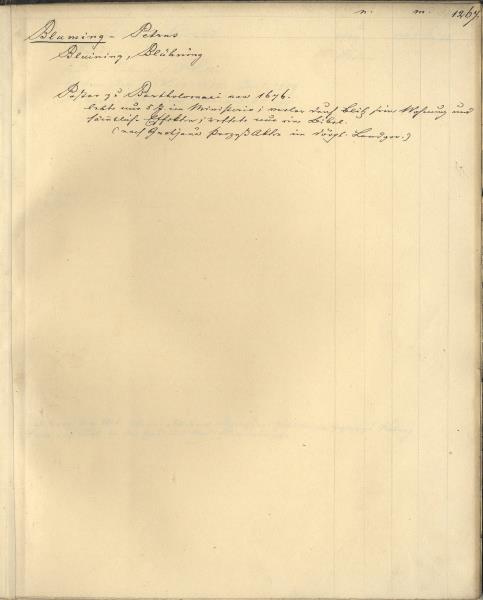 n. m. 1267.
Bluming - Petrus
Bluining, Blühning
Pastor zu Bartholomaei nur 1676.
lebte nur 5 J. im Ministerio; verlor durch Blitz sein Wohnung und
sämtliche Effekten; rettete nur ein Bibel.
(nach Akte im Landger.)